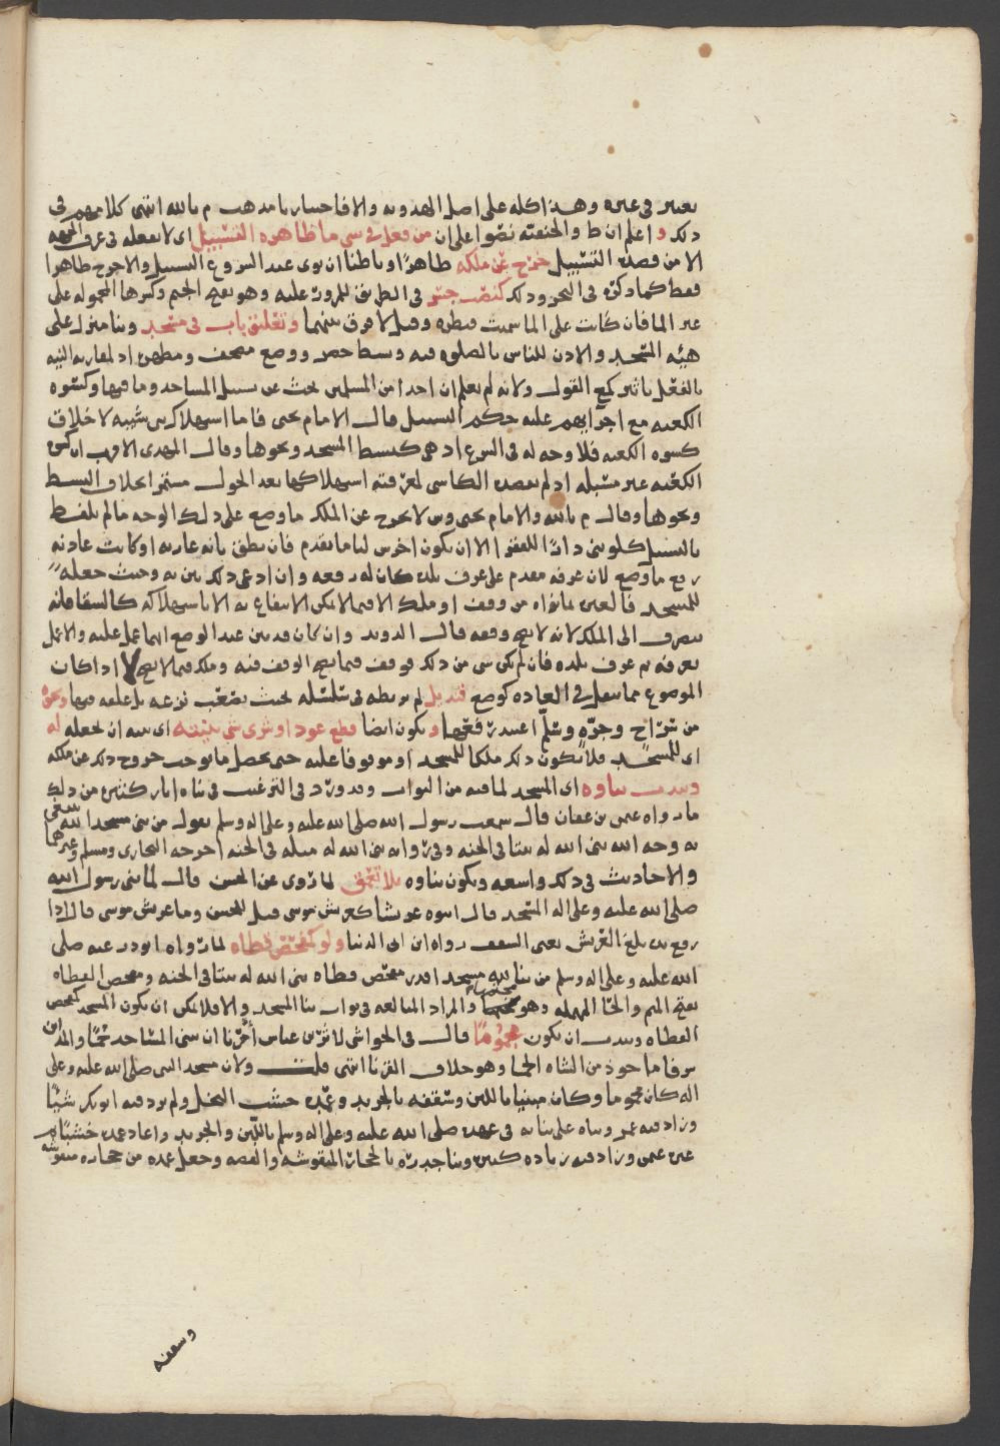 يعتبر في غيره وهذا كله على اصل الهدويه والا فاحتيار بامذهب م بالله انتهى كلامهم في
ذلك واعلم ان ط والحنفيه نصوا على ان من فعل في شي ما ظاهره التسبيل اى لا يفعله في عرف الجهه
الا من قصد التسبيل خرج عن ملكه ظاهرًا وباطنا ان نوى عند الشروع التسبيل والا خرج ظاهرا
فقط كما ذكره في البحر وذلك كنصب جسر في الطريق للمرور عليه وهو بفتح الجيم وكسرها المحموله على
غير الما فان كانت على الما سميت قنطره وقيل لا فرق بينهما وتعليق باب في مسجد وبنا منزل على
هيئه المسجد والاذن للناس بالصلوه فيه وبسط حصر ووضع مصحف و اذ لمقاربه النيه
بالفعل تاثير كمع القول ولانه لم يعلم ان احدا من المسلمين بحث عن تسبيل المساجد وما فيها وكسوه
الكعبه مع اجرايهم عليه حكم التسبيل قال الامام يحيى فاما استهلاك بني شيبه لاخلاق
كسوه الكعبه فلا وجه له في الشرع اذ هى كبسط المسجد ونحوها وقال المهدى الاقرب ان كسوه
الكعبه غير مسبله اذ لم يقصد الكاسى لمعرفته استهلاكها بعد الحول مستمرا بخلاف البسط
ونحوها وقال م بالله والامام يحيى وس لا يخرج عن الملك ما وضع على ذلك الوجه ما لم يلفظ
بالتسبيل كلو بنى دارًا للفقرا الا ان يكون اخرس لنا ما تقدم فان نطق بانه عاريه او كانت عادته
رفع ما وضع لان عرفه مقدم على عرف بلده كان له رفعه وان ادعى ذلك بين به وحيث جعله
للمسجد فالعبره بما نواه من وقف او ملك الا فيما لا يمكن الانتفاع به الا باستهلاكه كالسقا فانه
ينصرف الى الملك لانه لا يصح وقفه قال الدويد وان كان قد بين عند الوضع ايهما عمل عليه والا عمل
بعرفه ثم عرف بلده فان لم يكن شى من ذلك فوقف فيما يصح الوقف فيه وملك فيما لا يصح لا اذا كان
الموضوع مما ينقل في العاده كوضع قنديل لم يربطه في سلسله بحيث يصعب نزعه بل علقه فيها ونحوه
من سراج وجرّه وسُلّم اعتيد رفعها و يكون ايضا قطع عود او شرى شي بنيته اى بنيه ان يجعله له
اى للمسجد فلا يكون ذلك ملكا للمسجد او موقوفا عليه حتى يحصل ما يوجب خروج ذلك عن ملكه
وندب بناوه اى المسجد لما فيه من الثواب وقد ورد في الترغيب في بناه اثار كثيره من ذلك
ما رواه عثمن بن عفان قال سمعت رسول الله صلى الله عليه وعلى اله وسلم يقول من بنى مسجدا لله يبتغي
به وجه الله بنى الله له بيتا في الجنه وفي روايه بنى الله له مثله في الجنه اخرجه البخارى ومسلم وغيرهما
والاحاديث في ذلك واسعه ويكون بناوه بلا تعمق لما روى عن الحسن قال لما بنى رسول الله
صلى الله عليه وعلى اله المسجد قال ابنوه عريشا كعريش موسى قيل للحسن وما عريش موسى قال اذا
رفع يده بلغ العريش يعنى السقف رواه ابن ابى الدنيا ولو كمفحص قطاه لما رواه ابوذر عنه صلى
الله عليه وعلى اله وسلم من بنا لله مسجدا قدر مفحص قطاه بنى الله له بيتا في الجنه ومفحص القطاه
بفتح الميم والحا المهمله وهو مجثمها والمراد المبالغه في ثواب بنا المسجد والا فلا يمكن ان يكون المسجد كمفحص
القطاه وندب ان يكون مجمومًا قال في الحواشى لاثر بن عباس اُمرنا ان نبنى المساجد جمًا والمداين
شرفا ماخوذ من الشاه الجما وهو خلاف القرنا انتهى قلت ولان مسجد النبى صلى الله عليه وعلى
اله كان مجموما وكان مبنيا باللبن وسقفه بالجريد وعمده خشب النخل ولم يزد فيه ابو بكر شيئًا
وزاد فيه عمر وبناه على بنايه في عهده صلى الله عليه وعلى اله وسلم باللبن والجريد واعاد عمده خشبًا ثم
غيره عثمن وزاد فيه زياده كثيره وبنا جدره بالحجاره المنقوشه والقصه وجعل عمده من حجاره منقوشه
وسقفه